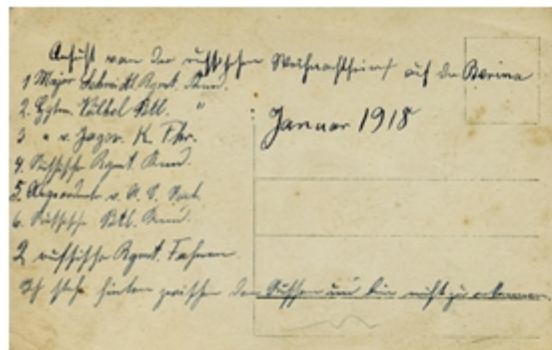 Ansicht von der russischen Weihnachtsfeier auf der Berina
1 Major Schmidt Rgmt. Kmd.
2. Hptm. Völkel Btl. "
3 " v. Jagow. K. Fhr.
4. Russischer Rgmt. Kmd.
5. Abgeordneter v. A. S. Rat.
6. Russischer Btl. Kmd.
2 russische Rgmt. Fahnen.
Ich stehe hinten zwischen den Russen und bin nicht zu erkennen.
Januar 1918